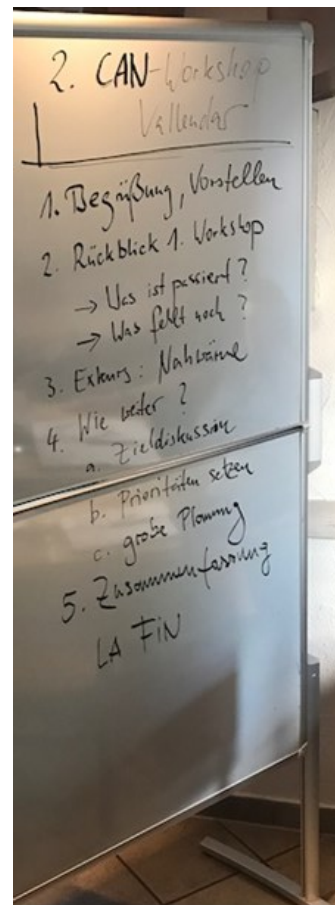 2. CAN-Workshop
Vallendar
1. Begrüßung, Vorstellen
2. Rückblick 1. Workshop
→ Was ist passiert?
→ Was fehlt noch?
3. Exkurs: Nahwärme
4. Wie weiter?
a. Zieldiskussion
b. Prioritäten setzen
c. grobe Planung
5. Zusammenfassung
LA FiN